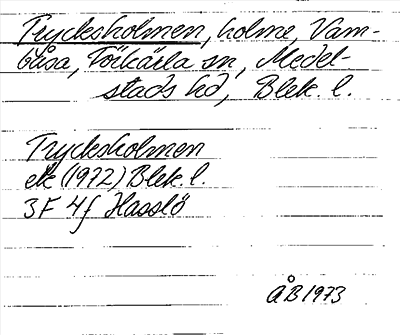 Trycksholmen, holme, Vam-
ölsa, Förkärla sn, Medel-
stads hd, Blek. l.
Trycksholmen
ek (1972) Blek. l.
3F 4f Hasslö
ÅB 1973